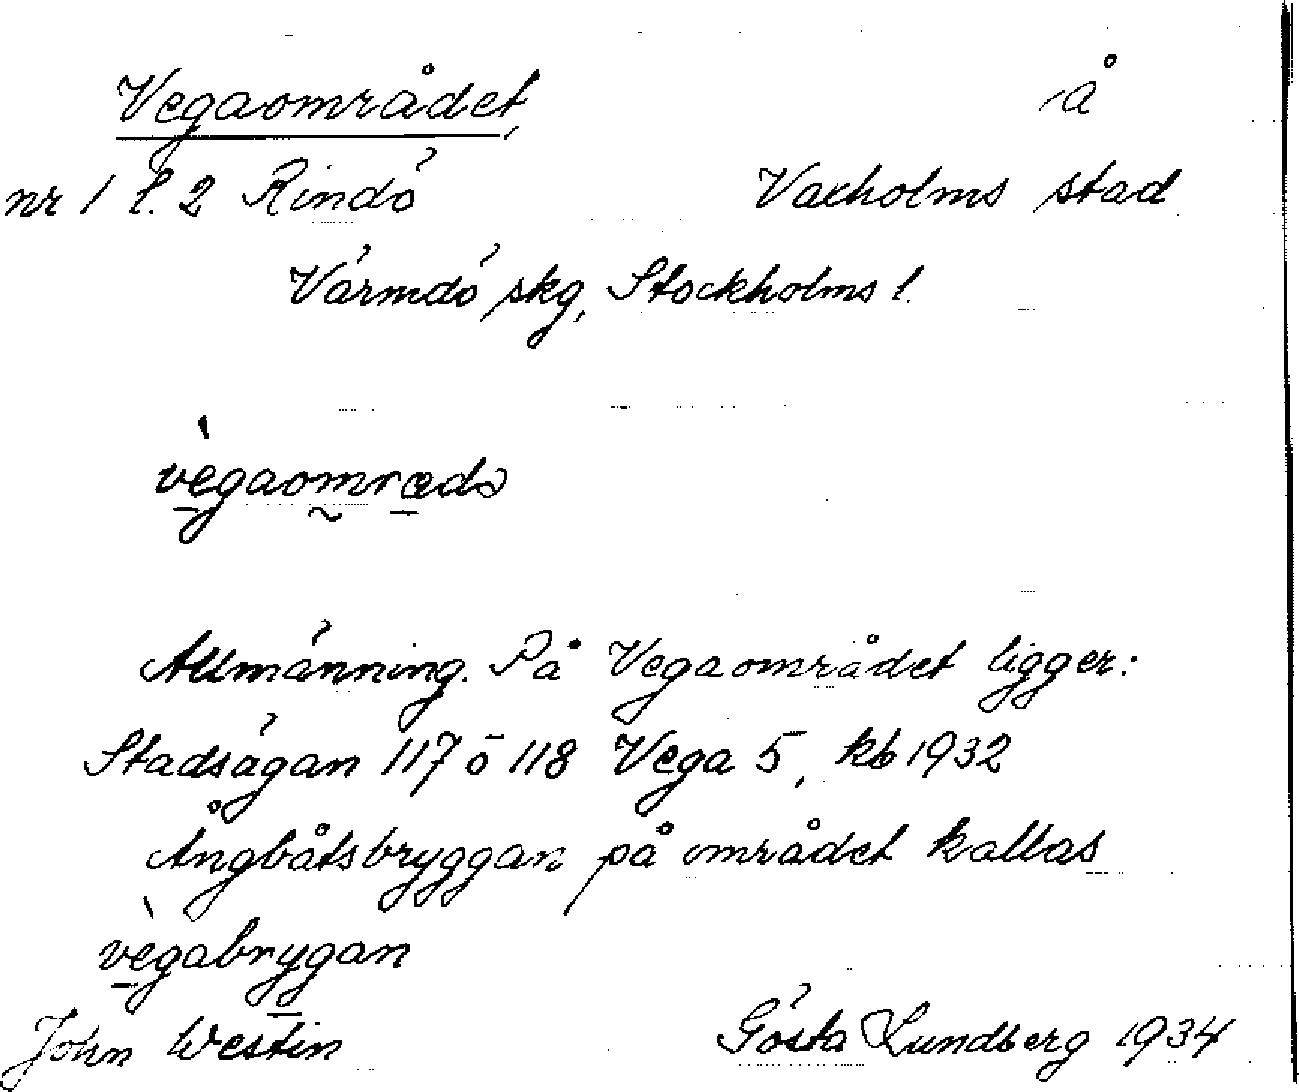 Vegaområdet, Å
nr 1 l. 2 Rindö Vaxholms stad
Värmdö skg, Stockholms l.
vègaomrædə
Allmänning. På Vegaområdet ligger:
Stadsägan 117 o 118 Vega 5, kb 1932
Ångbåtsbryggan på området kallas
vègabrygan
John Westin Gösta Lundberg 1934